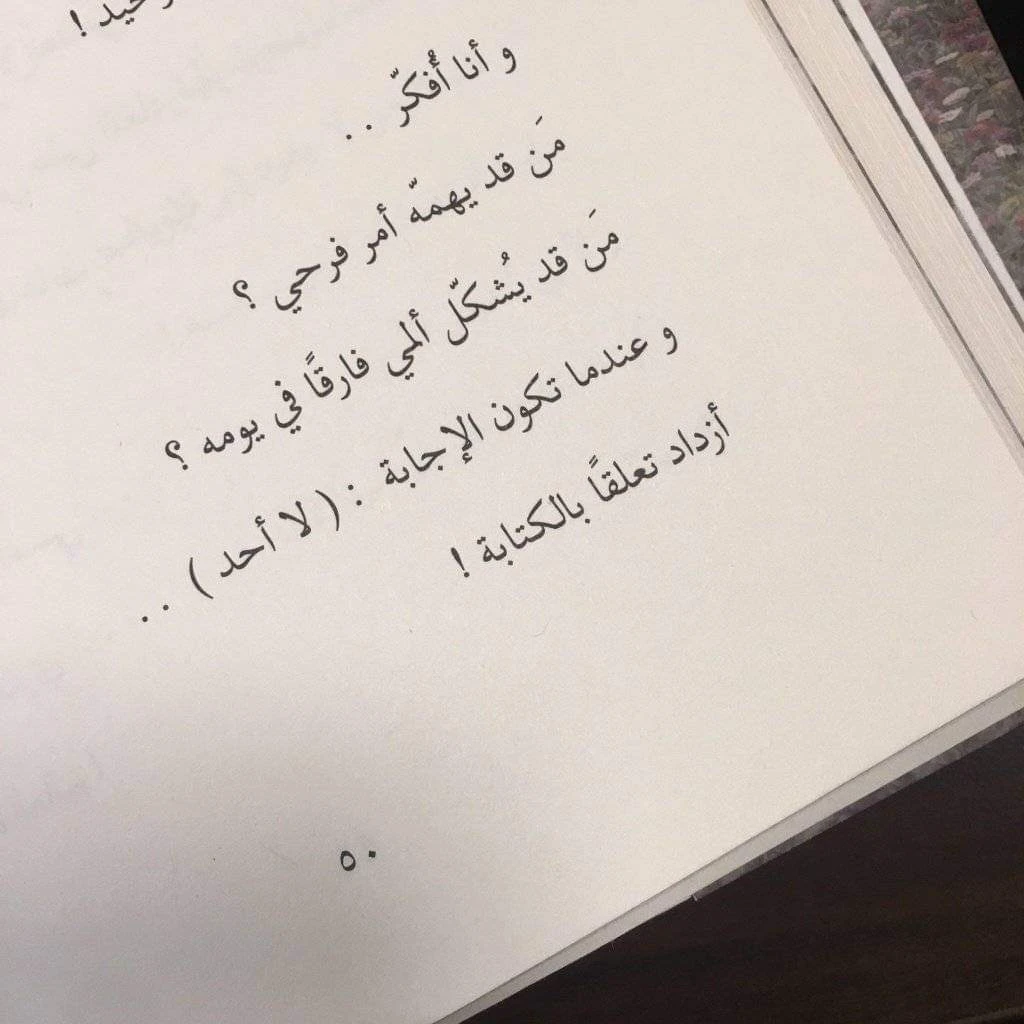 !
و أنا أُفكرّ . .
مَن قد يهمهّ أمر فرحي ؟
مَن قد يُشكّل ألمي فارقاً في يومه ؟
و عندما تكون الإجابة : ( لا أحد ) . .
أزداد تعلقاً بالكتابة !
٥٠